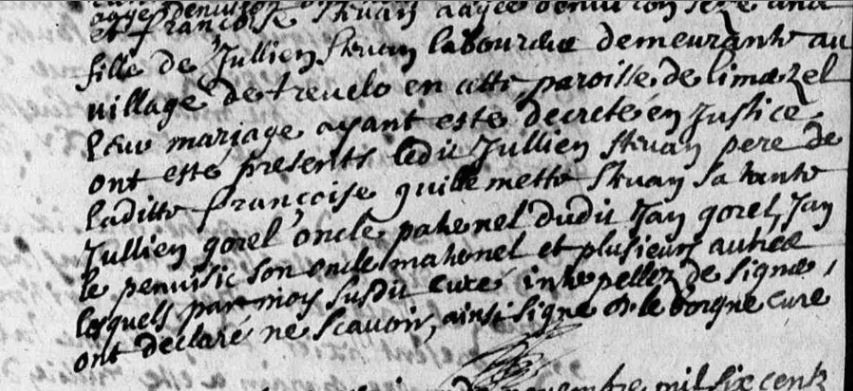 et françoise Skuan aagée denuiron seze ans
fille de Jullien Skuan laboureur demeurante au
village de treuelo en cette paroisse de limerzel
leur mariage ayant esté decreté en Justice
ont esté presents ledit Jullien Skuan pere de
laditte françoise guillemette Skuan sa tante
Jullien gorel oncle paternel dudit Jan gorel, Jan
le penuisic son oncle maternel et plusieurs autres
lesquels par moy susdit curé interpellez de signer,
ont declaré ne scauoir, ainsi signé le borgne curé
nouembre mil six cents